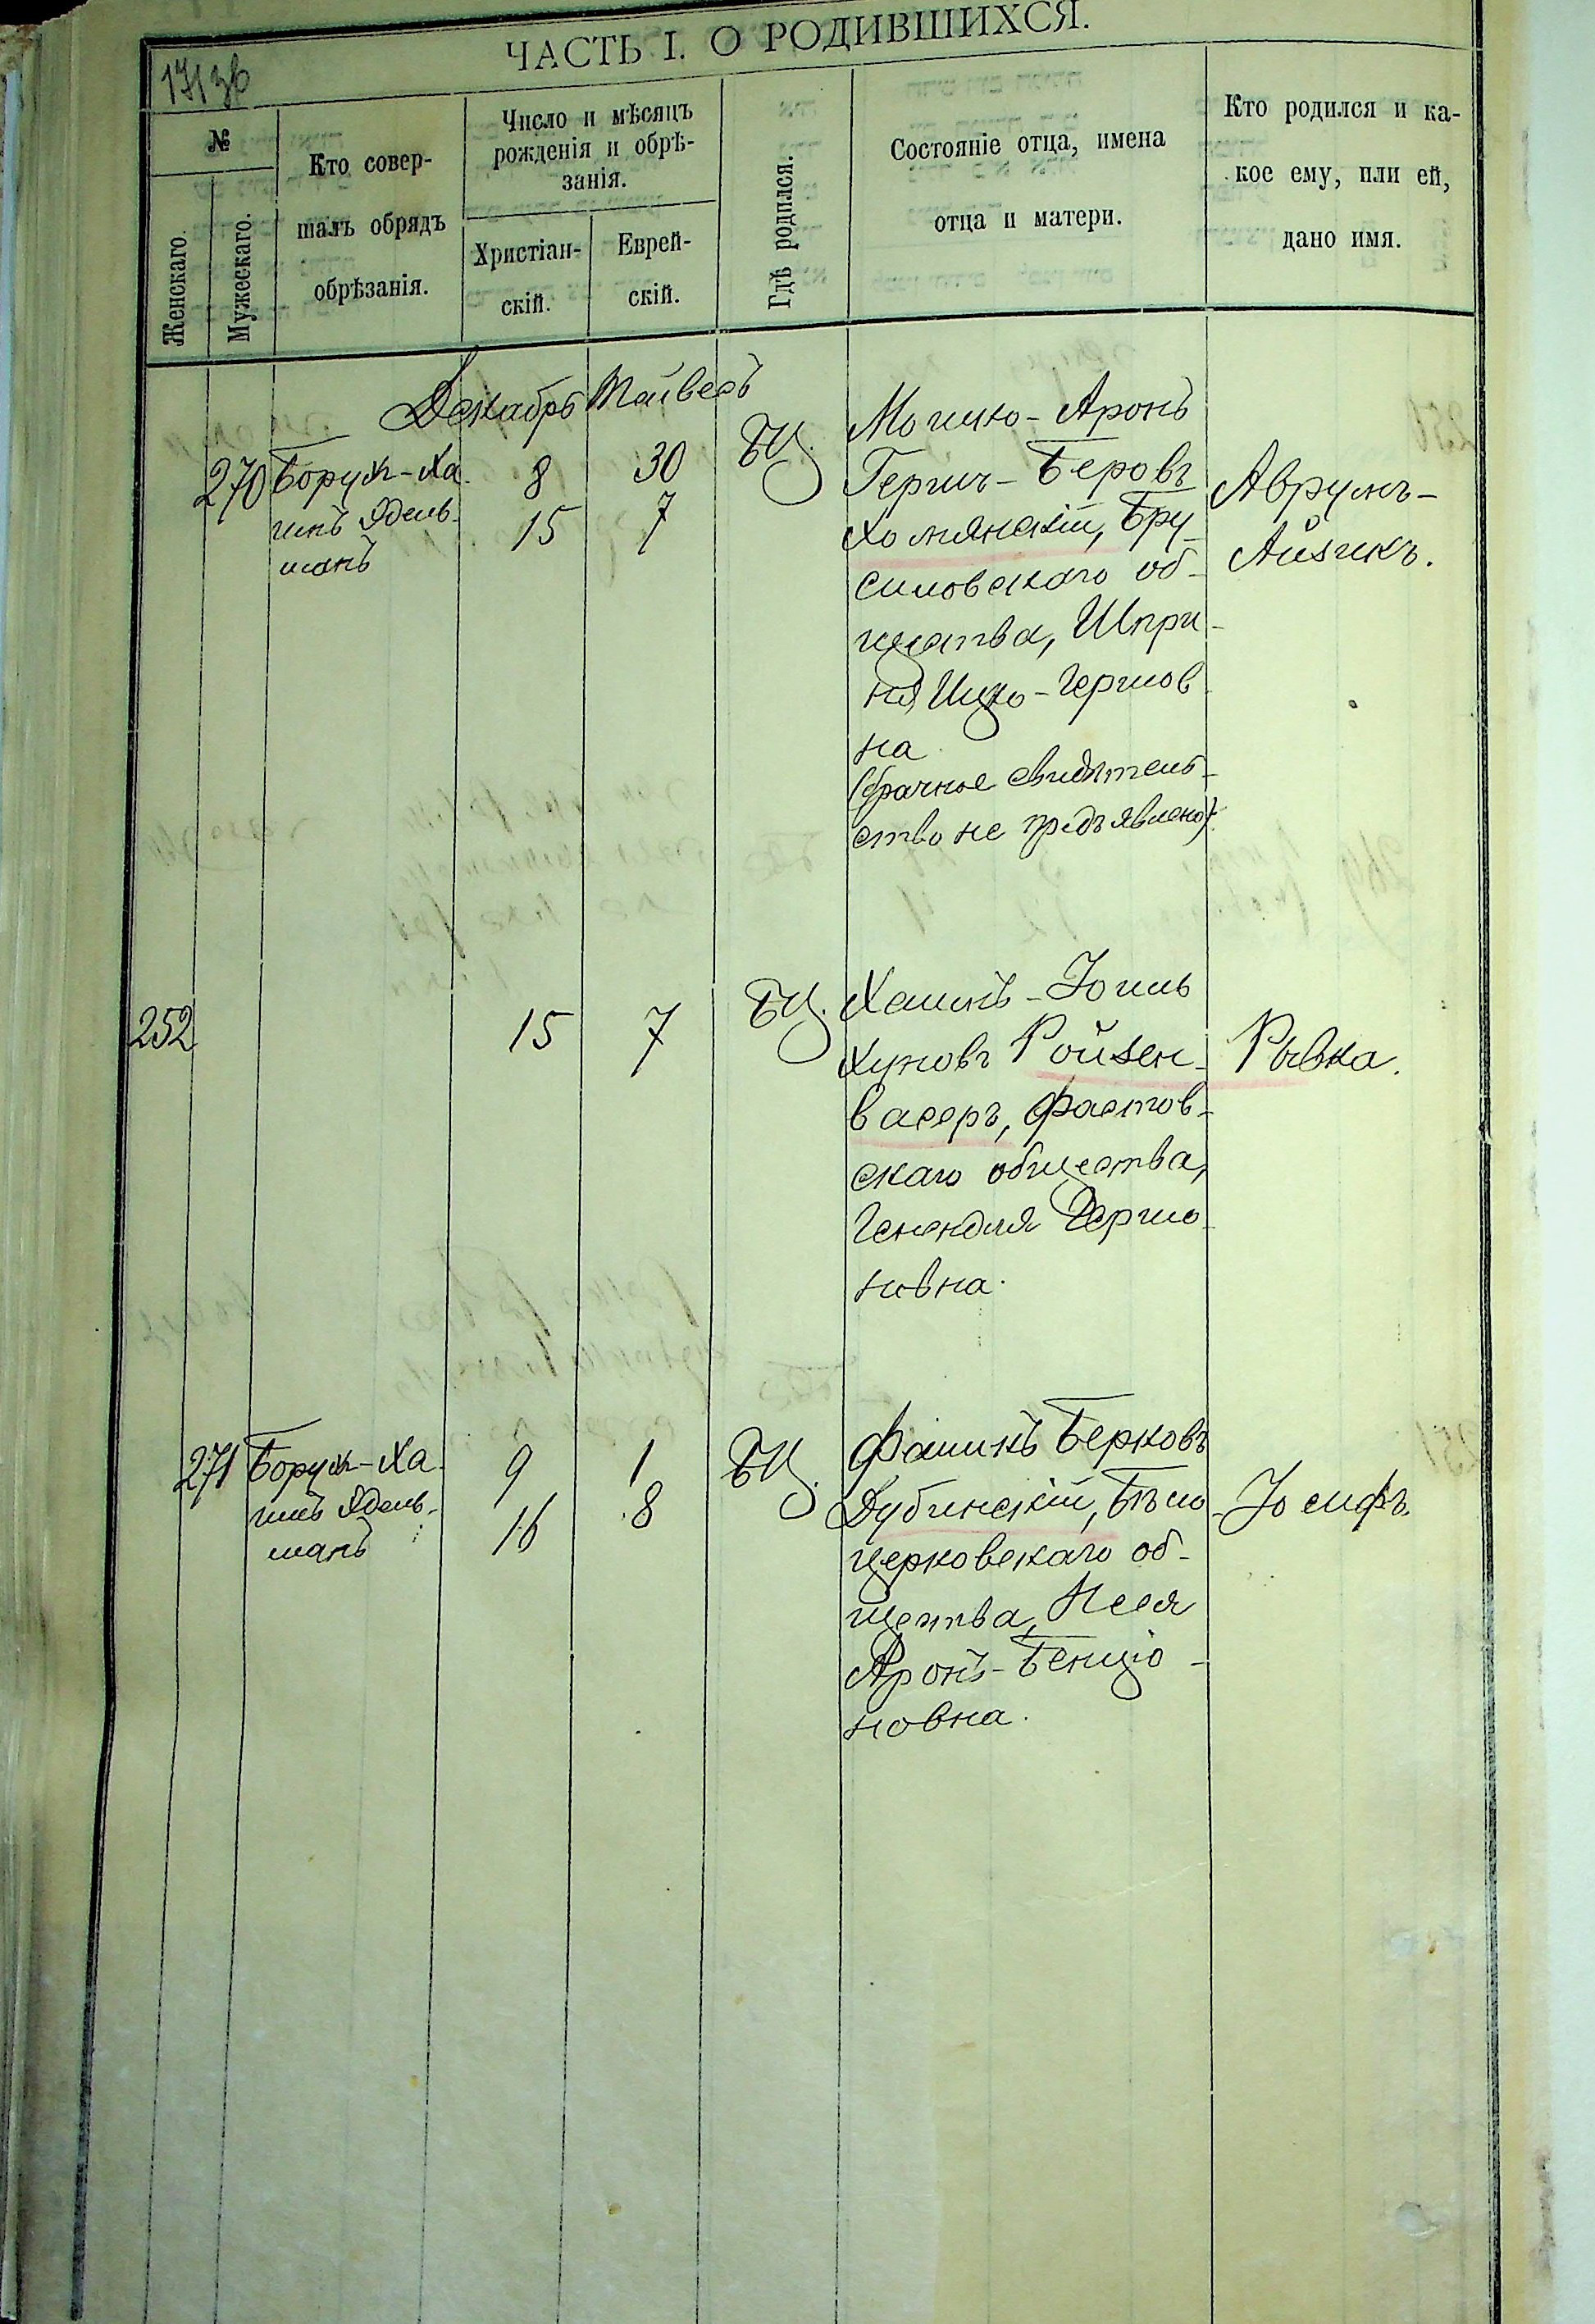 ЧАСТЬ I. О РОДИВШИХСЯ.
№
Женскаго.
Мужескаго.
Кто совер-
шалъ обрядъ
обрѣзанія.
Число и мѣсяцъ
рожденія и обрѣ-
занія.
Христіан-
скій.
Еврей-
скій.
Гдѣ родился.
Состояніе отца, имена
отца и матери.
Кто родился и ка-
кое ему, или ей,
дано имя.
Декабрь Тейвесъ
270
Борух-Ха
имъ Эдель-
манъ
8
15
30
7
БЦ.
Мошко-Аронъ
Герш-Беровъ
Хомянскій, Бру-
силовскаго об-
щества, Шпри-
ня Ицко-Гершов
на
(брачное свидѣтель-
ство не предъявлено).
Аврумъ-
Айзикъ.
252
15
7
БЦ.
Хаимъ-Іоиль
Хуновъ Ройзен-
васеръ, Фастов-
скаго общества,
Генендля Гершо
новна.
Рывка.
271
Борух-Ха
имъ Эдель-
манъ
9
16
1
8
БЦ.
Фаликъ Берковъ
Дубинскій, Бѣло
церковскаго об-
щества, Неся
Аронъ-Бенціо-
новна.
Іосифъ.